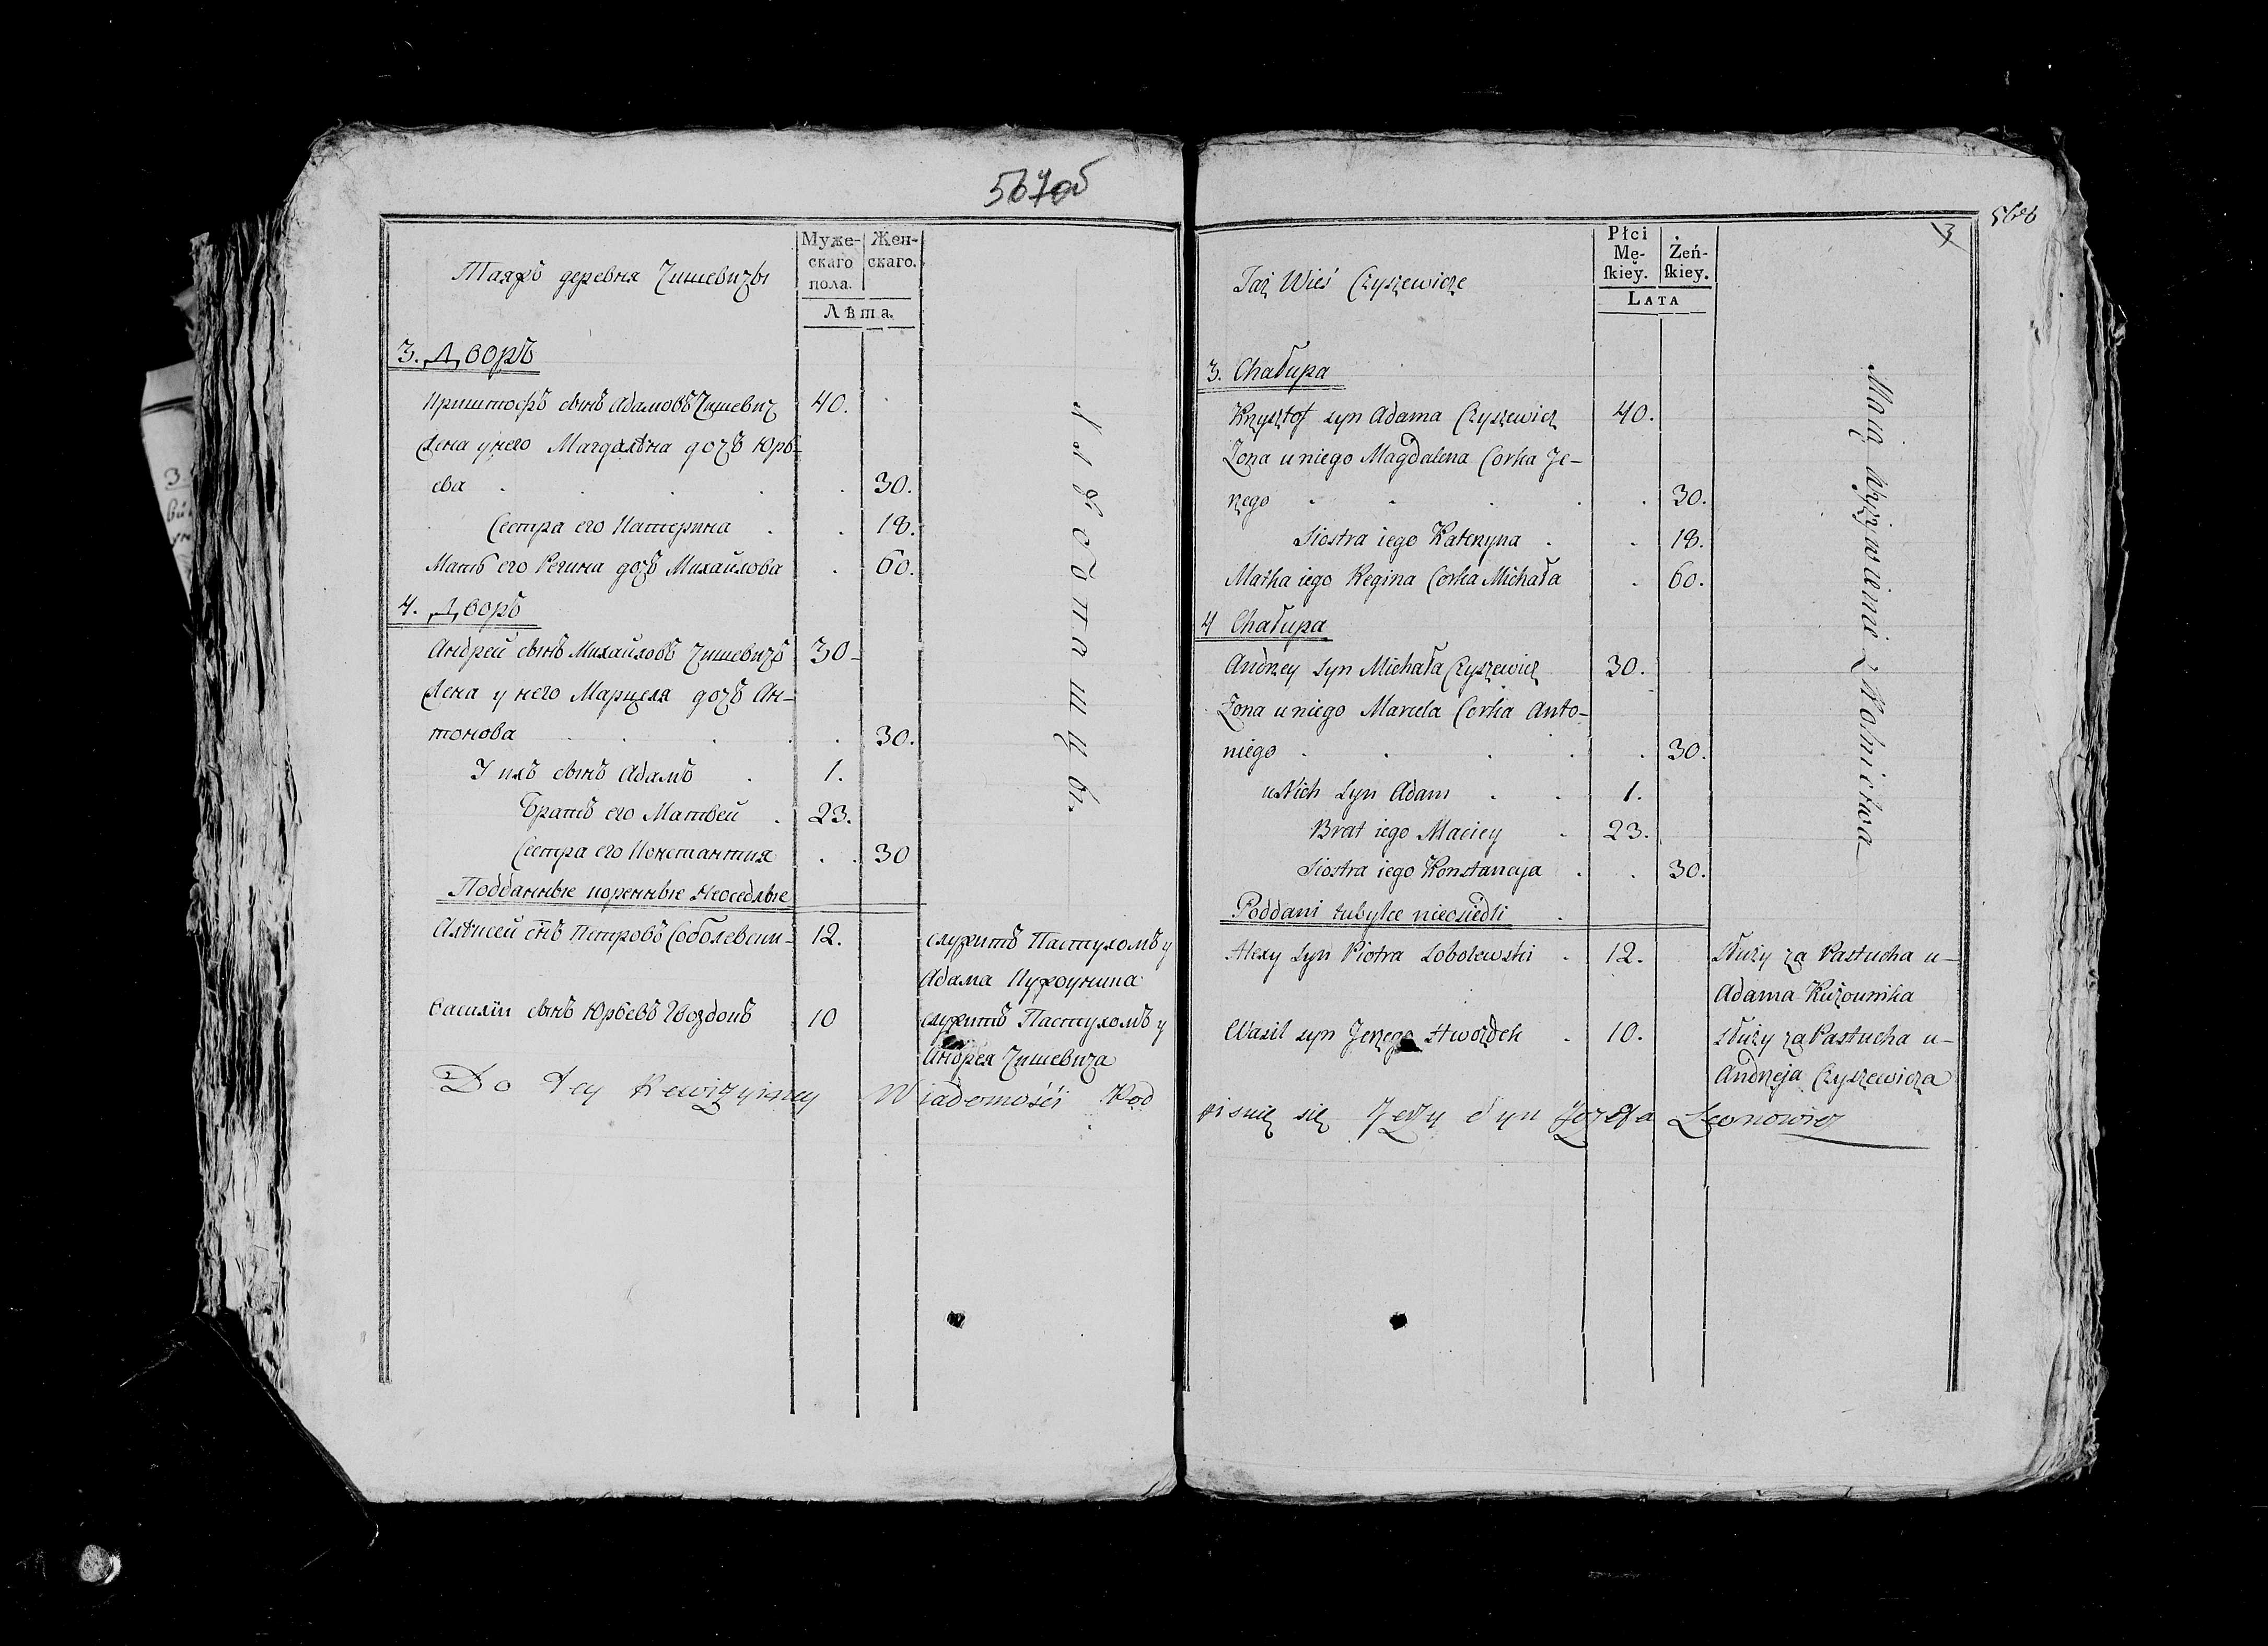 567об
Таяжъ деревня Чишевичы
Муже-
скаго
пола.
Жен-
скаго.
Лѣта.
3. Дворъ
Криштофъ сынъ Адамовъ Чишевич 40.
Жена у него Магдалѣна дочь Юрь-
ева 30.
Сестра его Катерина 18.
Мать его Регина дочь Михайлова 60.
4. Дворъ
Андрей сынъ Михайловъ Чишевичъ 30
Жена у него Марцеля дочь Ан-
тонова 30.
У ихъ сынъ Адамъ 1.
Братъ его Матвей 23.
Сестра его Константия 30
Подданные коренные неоседлые
Алѣксей снъ Петровъ Соболевски 12. служитъ Пастухомъ у
Адама Кужоуника
Василiи сынъ Юрьевъ Гвоздокъ 10 служитъ Пастухомъ у
Андрея Чишевича
Do tey Rewizyiney Wiadomości Pod
568
3
Taż Wieś Czyszewicze
Płci
Mę-
ſkiey.
Żeń-
ſkiey.
Lata
3. Chałupa
Krzysztof syn Adama Czyszewicz 40.
Żona u niego Magdalena Corka Je-
rzego 30.
Siostra iego Katerzyna 18.
Matka iego Regina Corka Michała 60.
4 Chałupa
Andrzey syn Michała Czyszewicz 30.
Żona u niego Marcela Corka Anto-
niego 30.
u Nich syn Adam 1.
Brat iego Maciey 23.
Siostra iego Konstancyja 30.
Poddani tubylce nieosiedli
Alexy syn Piotra Sobolewski 12. służy za Pastucha u-
Adama Kużounika
Wasil syn Jerzego Hwozdek 10. służy za Pastucha u-
Andrzeja Czyszewicza
pisuię się Jerzy Syn Jozefa Leonowicz
Maią wyżywienie z Rolnictwa